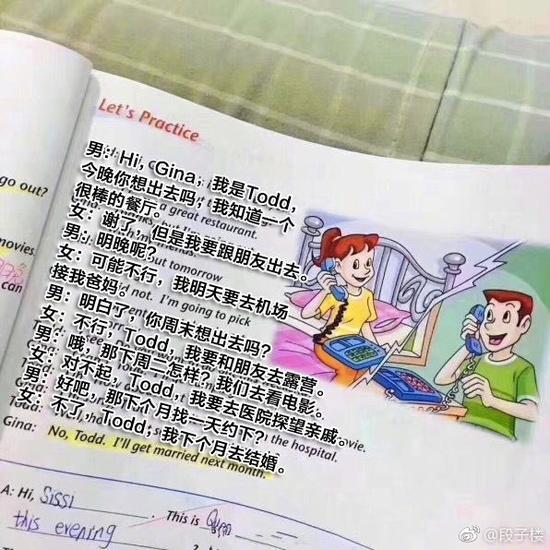 Let's Practice
男：Hi, Gina, 我是Todd,
今晚你想出去吗，我知道一个
很棒的餐厅。
a great restaurant.
女：谢了，但是我要跟朋友出去。
男：明晚呢？
out tomorrow
女：可能不行，我明天要去机场
接我爸妈。
not. I'm going to pick
男：明白了，你周末想出去吗？
女：不行，Todd，我要和朋友去露营。
男：哦，那下周二怎样？我们去看电影。
女：对不起，Todd，我要去医院探望亲戚。
男：好吧，那下个月找一天约下？
the hospital.
女：不了，Todd，我下个月去结婚。
Gina: No, Todd. I'll get married next month.
go out?
movies.
can
A: Hi, Sissi This is
this evening ?
@段子楼